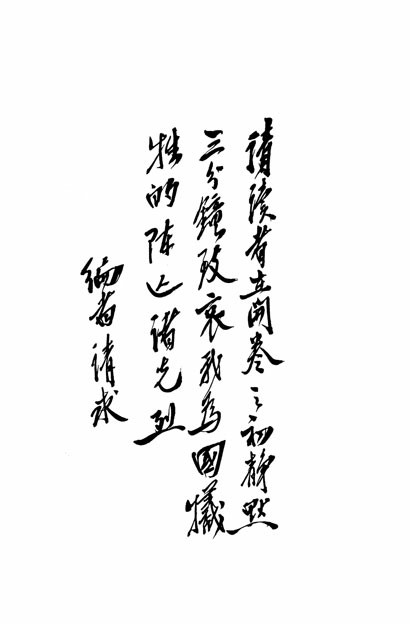 請讀者在開卷之初靜默
三分鐘致哀我為國犧
牲的陣亡諸先烈
編者請求